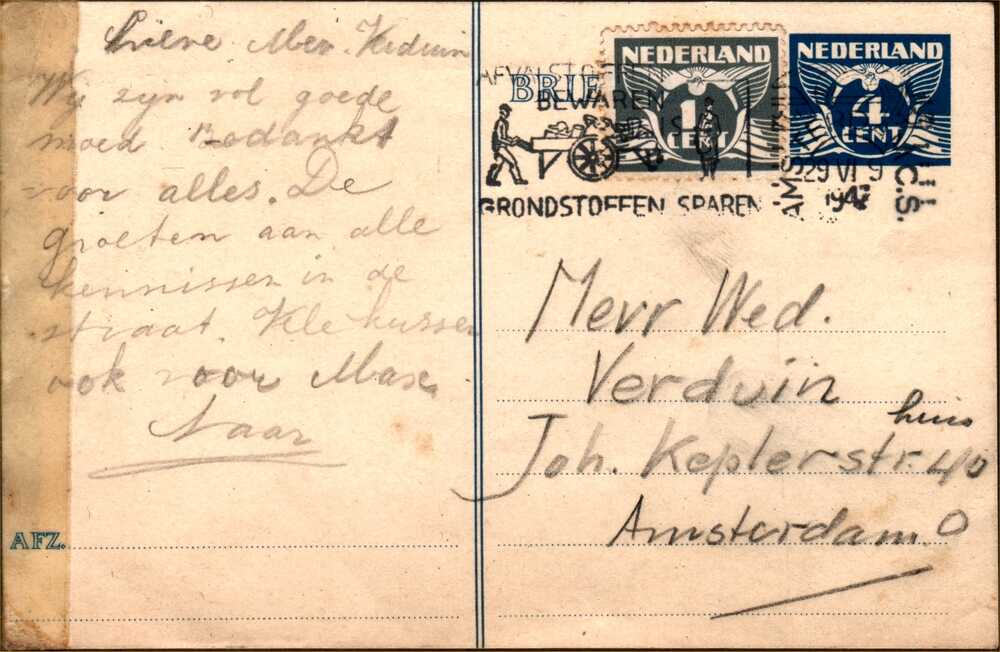 Lieve Mev. Verduin
Wy zyn vol goede
moed Bedankt
voor alles. De
groeten aan alle
kennissen in de
straat. Vele kussen
ook voor Max
Naar
AFZ.
BRIE
NEDERLAND
1
CENT
NEDERLAND
4
CENT
AFVALSTOFFEN
BEWAREN
IS
GRONDSTOFFEN SPAREN
AMS
C.S.
29 VI 9
194
Mevr Wed.
Verduin
huis
Joh. Keplerstr. 40
Amsterdam. O